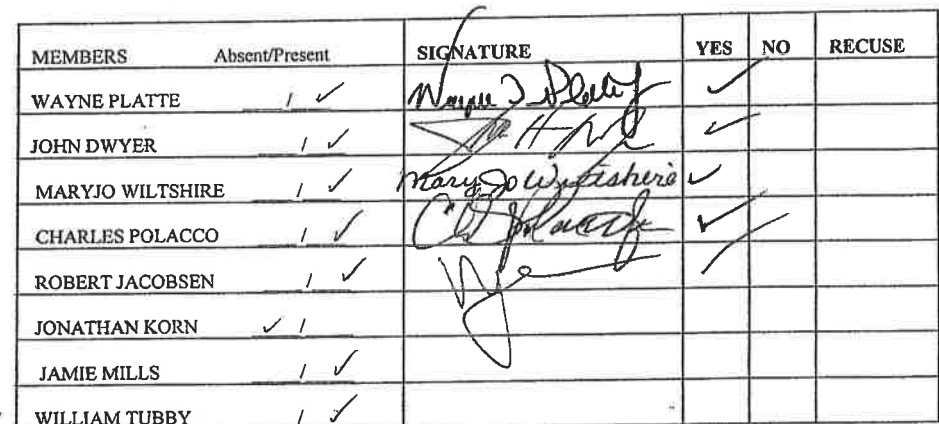 MEMBERS Absent/Present SIGNATURE YES NO RECUSE
WAYNE PLATTE / ✓ Wayne ✓
JOHN DWYER / ✓ ✓
MARYJO WILTSHIRE / ✓ Mary Jo Wiltshire ✓
CHARLES POLACCO / ✓ ✓
ROBERT JACOBSEN / ✓ ✓
JONATHAN KORN ✓ /
JAMIE MILLS / ✓
WILLIAM TUBBY / ✓